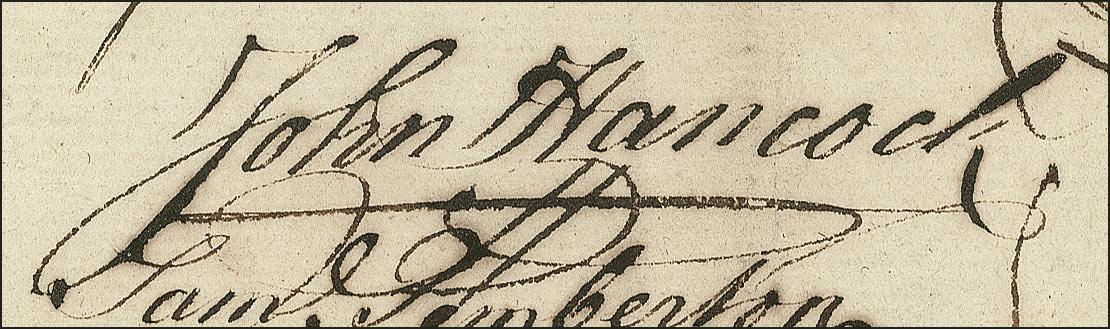 John Hancock
Sam. Pemberton